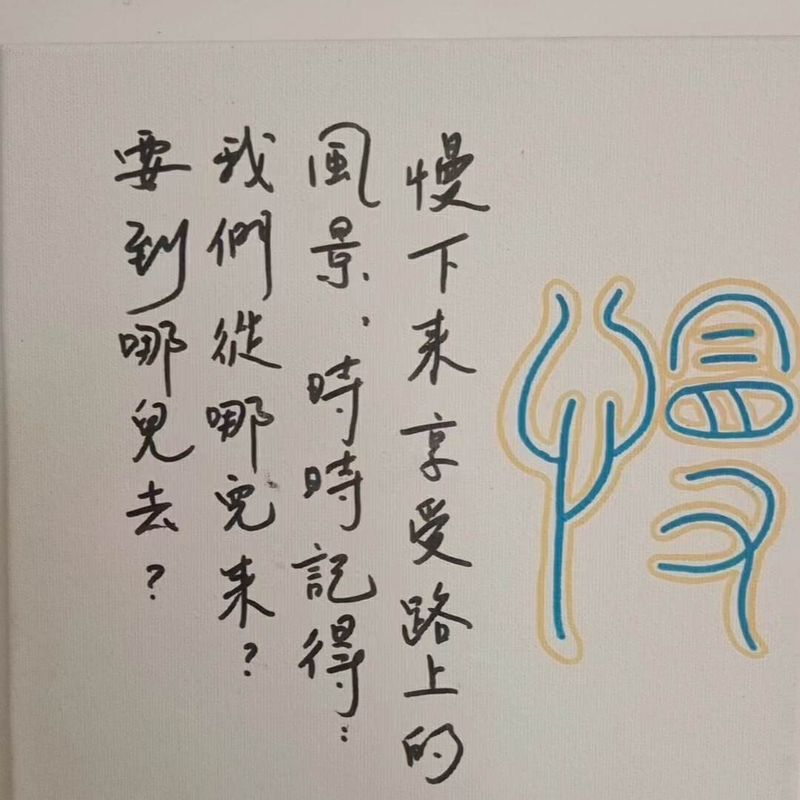 慢
慢下来享受路上的
風景、時時記得：
我們從哪兒来？
要到哪兒去？